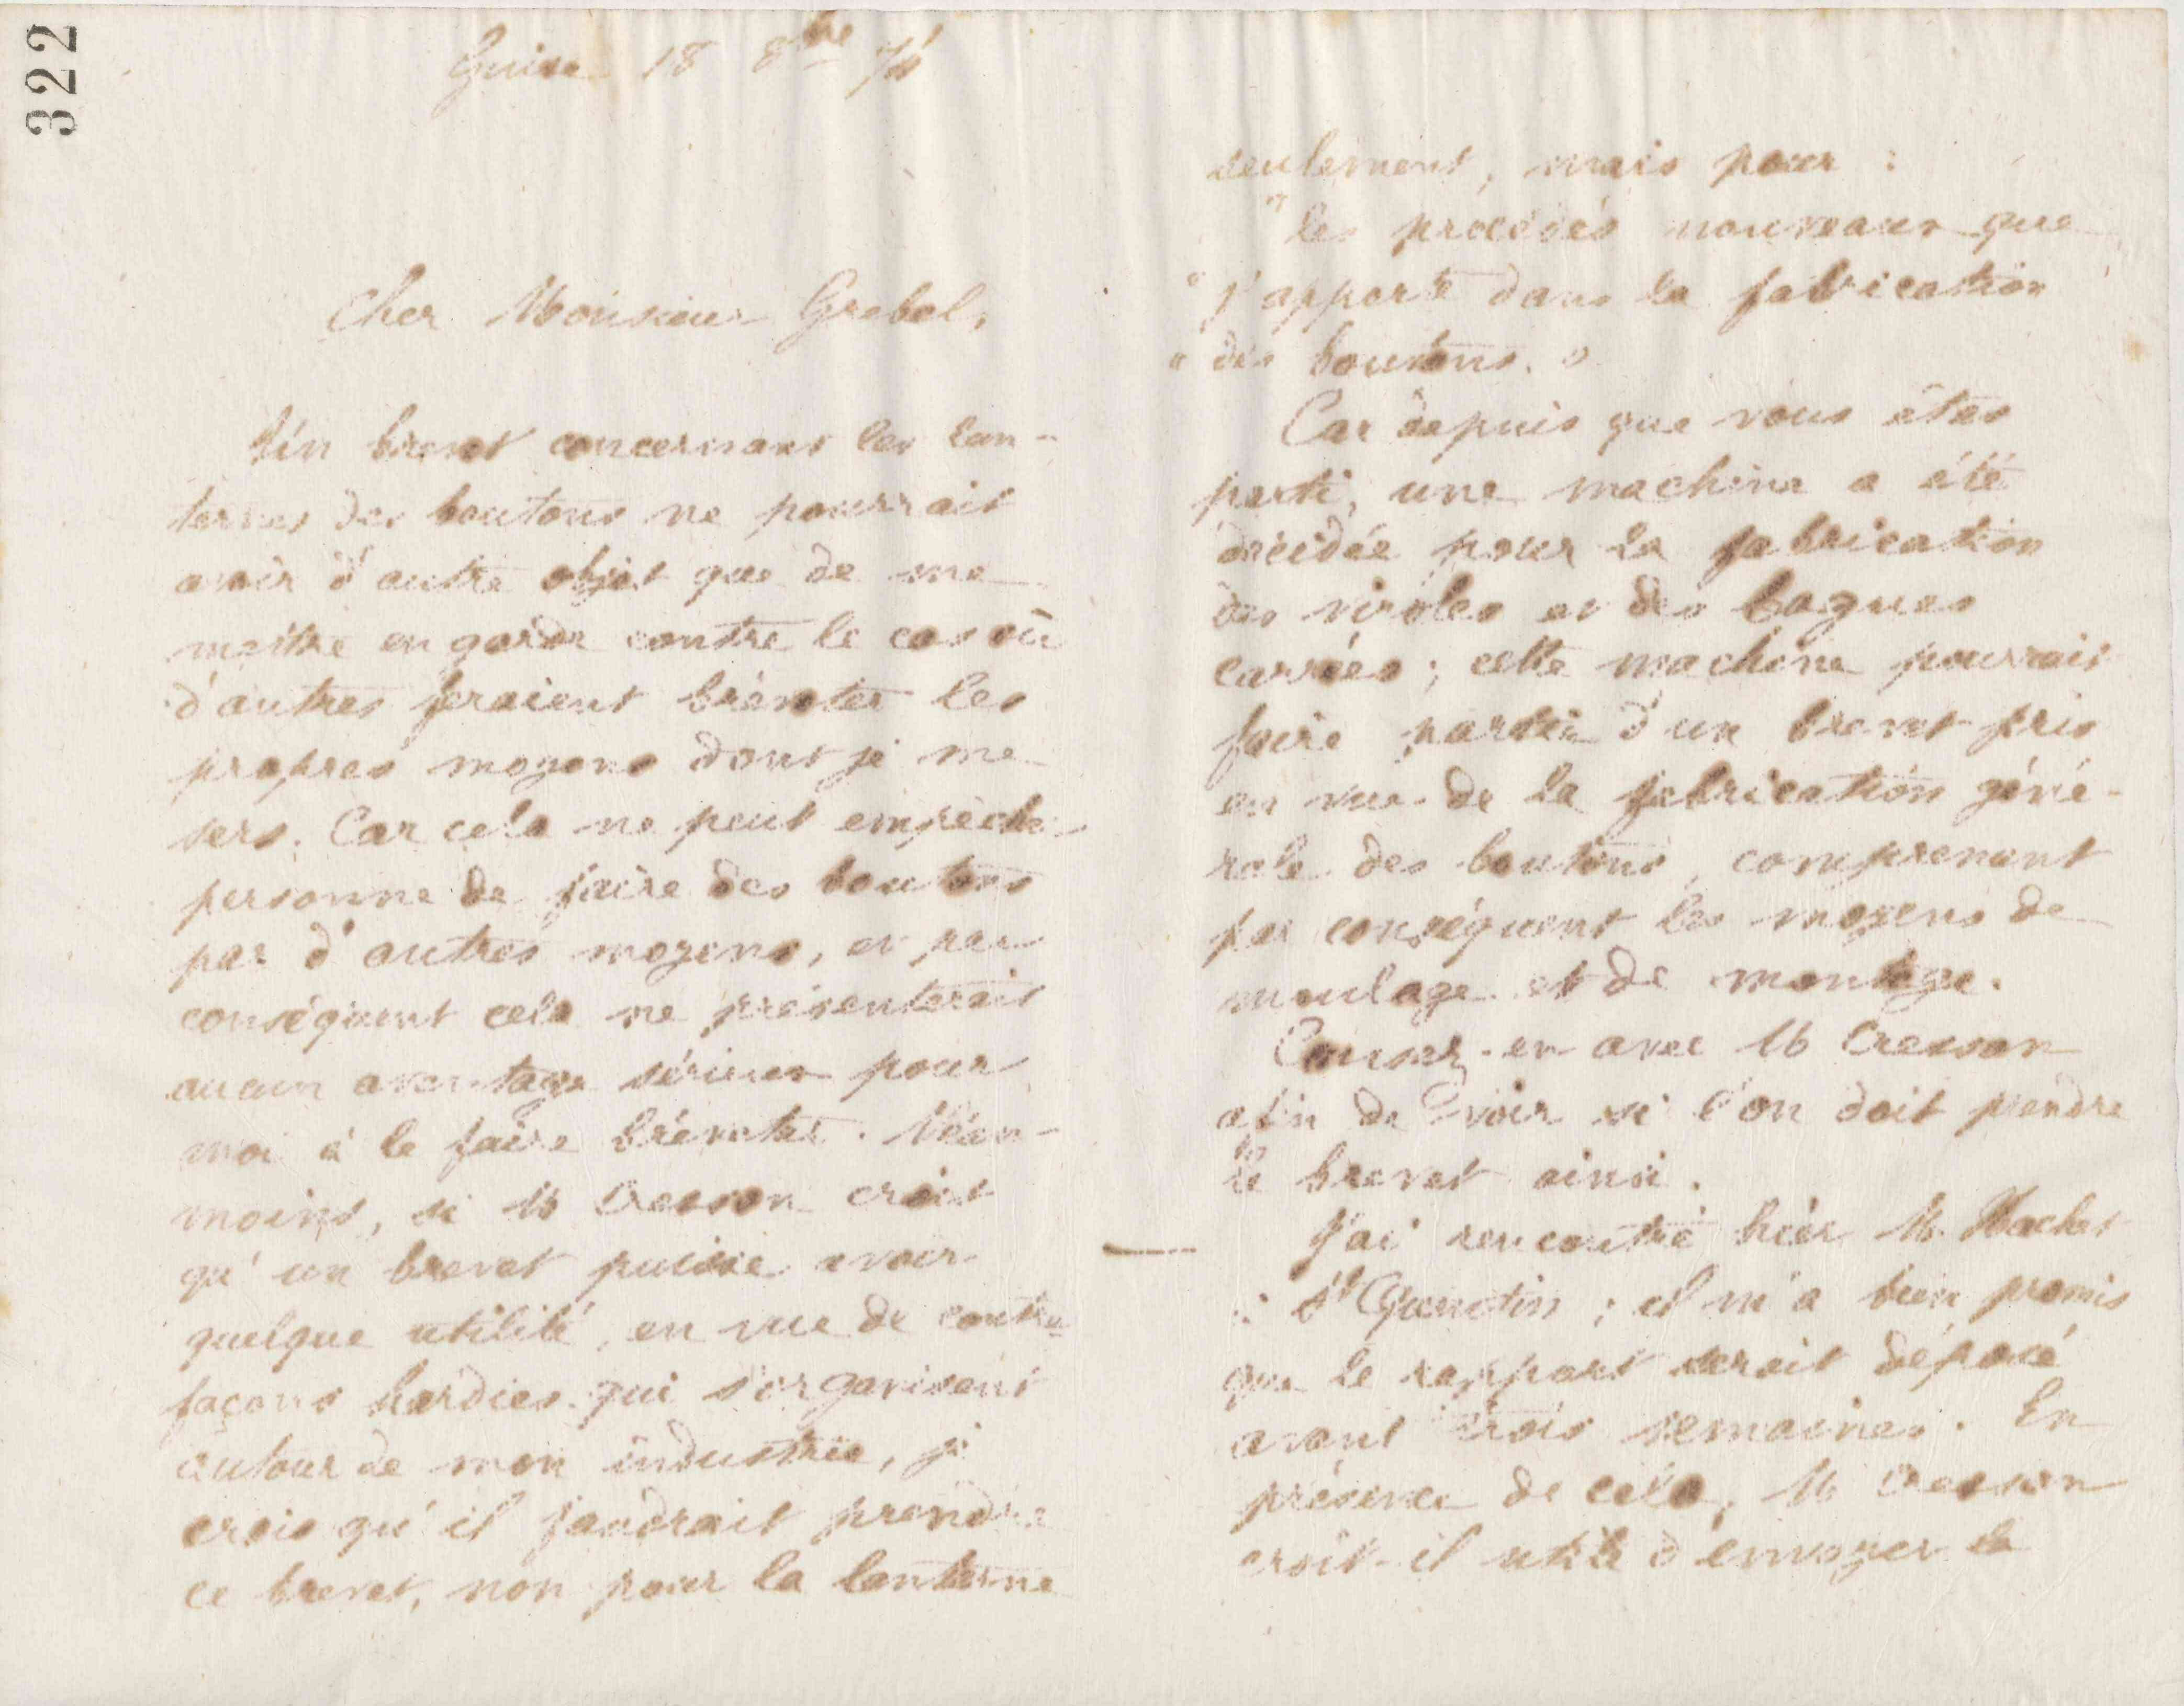 322
Guise 18 8bre 74
Cher Monsieur Grebel,
Un brevet concernant les lan-
ternes des boutons ne pourrait
avoir d'autre objet que de me
mettre en garde contre le cas où
d'autres feraient bréveter les
propres moyens dont je me
sers. Car cela ne peut empêcher
personne de faire des boutons
par d'autres moyens, et par
conséquent cela ne présenterait
aucun avantage sérieux pour
moi à le faire bréveter. Néan-
moins, si M Cresson croit
qu'un brevet puisse avoir
quelque utilité, en vue de contre-
façons hardies qui s'organisent
autour de mon industrie, je
crois qu'il faudrait prendre
ce brevet, non pour la lanterne
seulement, mais pour :
" les procédés nouveaux que
" j'apporte dans la fabrication
" des boutons. "
Car depuis que vous êtes
parti, une machine a été
décidée pour la fabrication
des viroles et des bagues
carrées ; cette machine pourrait
faire partie d'un brevet pris
en vue de la fabrication géné-
rale des boutons, comprenant
par conséquent les moyens de
moulage et de montage.
Causez-en avec M Cresson
afin de voir si l'on doit prendre
le brevet ainsi.
J'ai rencontré hier M.
à St Quentin ; il m'a bien promis
que le rapport serait déposé
avant trois semaines. En
présence de cela, M Cresson
croit-il utile d'envoyer la